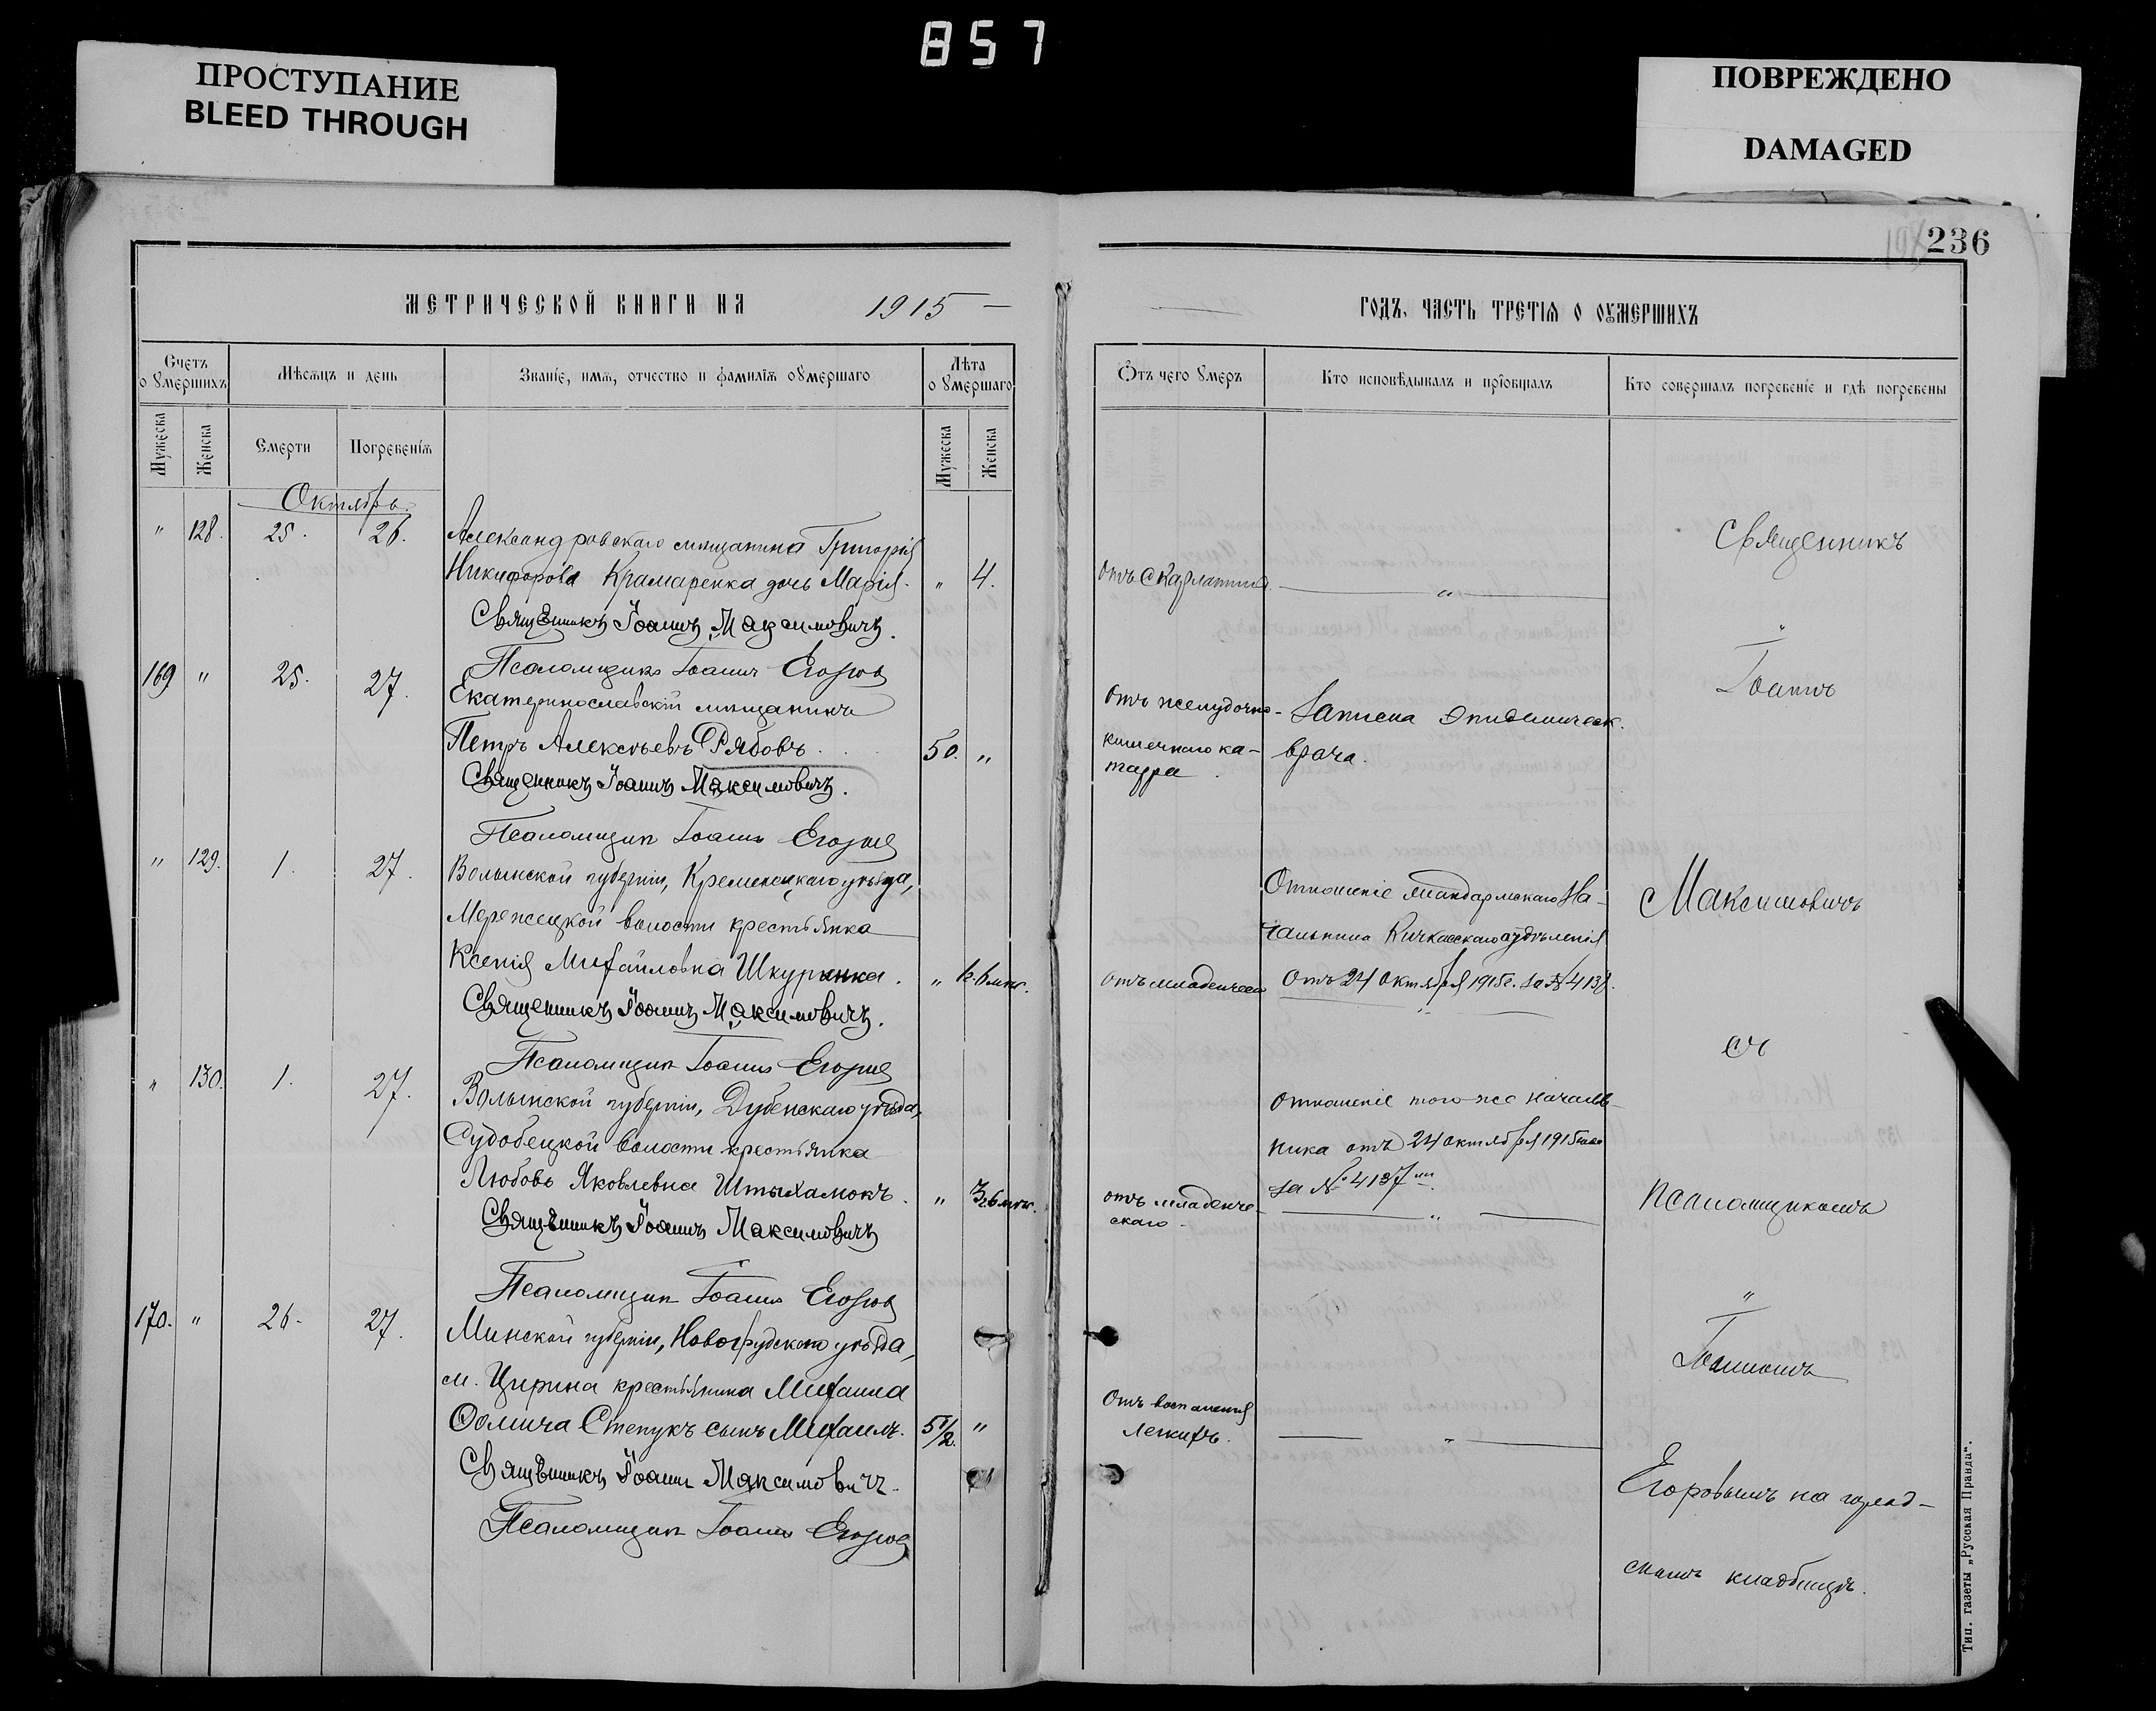 857
ПРОСТУПАНИЕ
BLEED THROUGH
ПОВРЕЖДЕНО
DAMAGED
236
МЕТРИЧЕСКОЙ КНИГИ НА 1915
ГОДЪ, ЧАСТЬ ТРЕТІЯ О ОУМЕРШИХЪ
Счетъ о умершихъ
Мѣсяцъ и день
Званіе, имя, отчество и фамилія оумершаго
Лѣта о умершаго
Отъ чего умеръ
Кто исповѣдывалъ и пріобщалъ
Кто совершалъ погребеніе и гдѣ погребены
Мужеска
Женска
Смерти
Погребенія
Мужеска
Женска
Октябрь.
" 128. 25. 26. Александровскаго мѣщанина Григорія
Никифорова Крамаренка дочь Марія. " 4. отъ скарлатины "
Священникъ Іоаннъ Максимовичъ.
Псаломщикъ Іоаннъ Егоровъ
169 " 25. 27. Екатеринославскій мѣщанинъ
Петръ Алексѣевъ Рябовъ. 50. "
отъ желудочно-
кишечнаго ка-
тарра.
Записка эпидемическ.
врача.
Священникъ Іоаннъ Максимовичъ.
Псаломщикъ Іоаннъ Егоровъ
" 129. 1. 27. Волынской губерніи, Кременецкаго уѣзда,
волости крестьянка
Ксенія Михайловна "
Отношеніе жандармскаго На-
чальника Кичкасскаго отдѣленія
отъ 24 октября 1915 г. за № 4137.
отъ младенческ
Священникъ Іоаннъ Максимовичъ.
Псаломщикъ Іоаннъ Егоровъ
" 130. 1. 27. Волынской губерніи, Дубенскаго уѣзда,
Судобецкой волости крестьянка
Любовь Яковлевна " 3 г. 6 мѣс.
отъ младенче-
скаго
Отношеніе того-же началь-
ника отъ 24 октября 1915 года
за № 4137
Священникъ Іоаннъ Максимовичъ
Псаломщикъ Іоаннъ Егоровъ
170. " 26. 27. Минской губерніи, Новогрудскаго уѣзда,
м. Цирина крестьянина Михаила
Ѳомича Степукъ сынъ Михаилъ. 5 1/2. "
Отъ воспаленія
легкихъ.
"
Священникъ Іоаннъ Максимовичъ.
Псаломщикъ Іоаннъ Егоровъ
Священникъ
Іоаннъ
Максимовичъ
съ
псаломщикомъ
Іоанномъ
Егоровымъ на город-
скомъ кладбищѣ.
Тип. газеты „Русская Правда“.